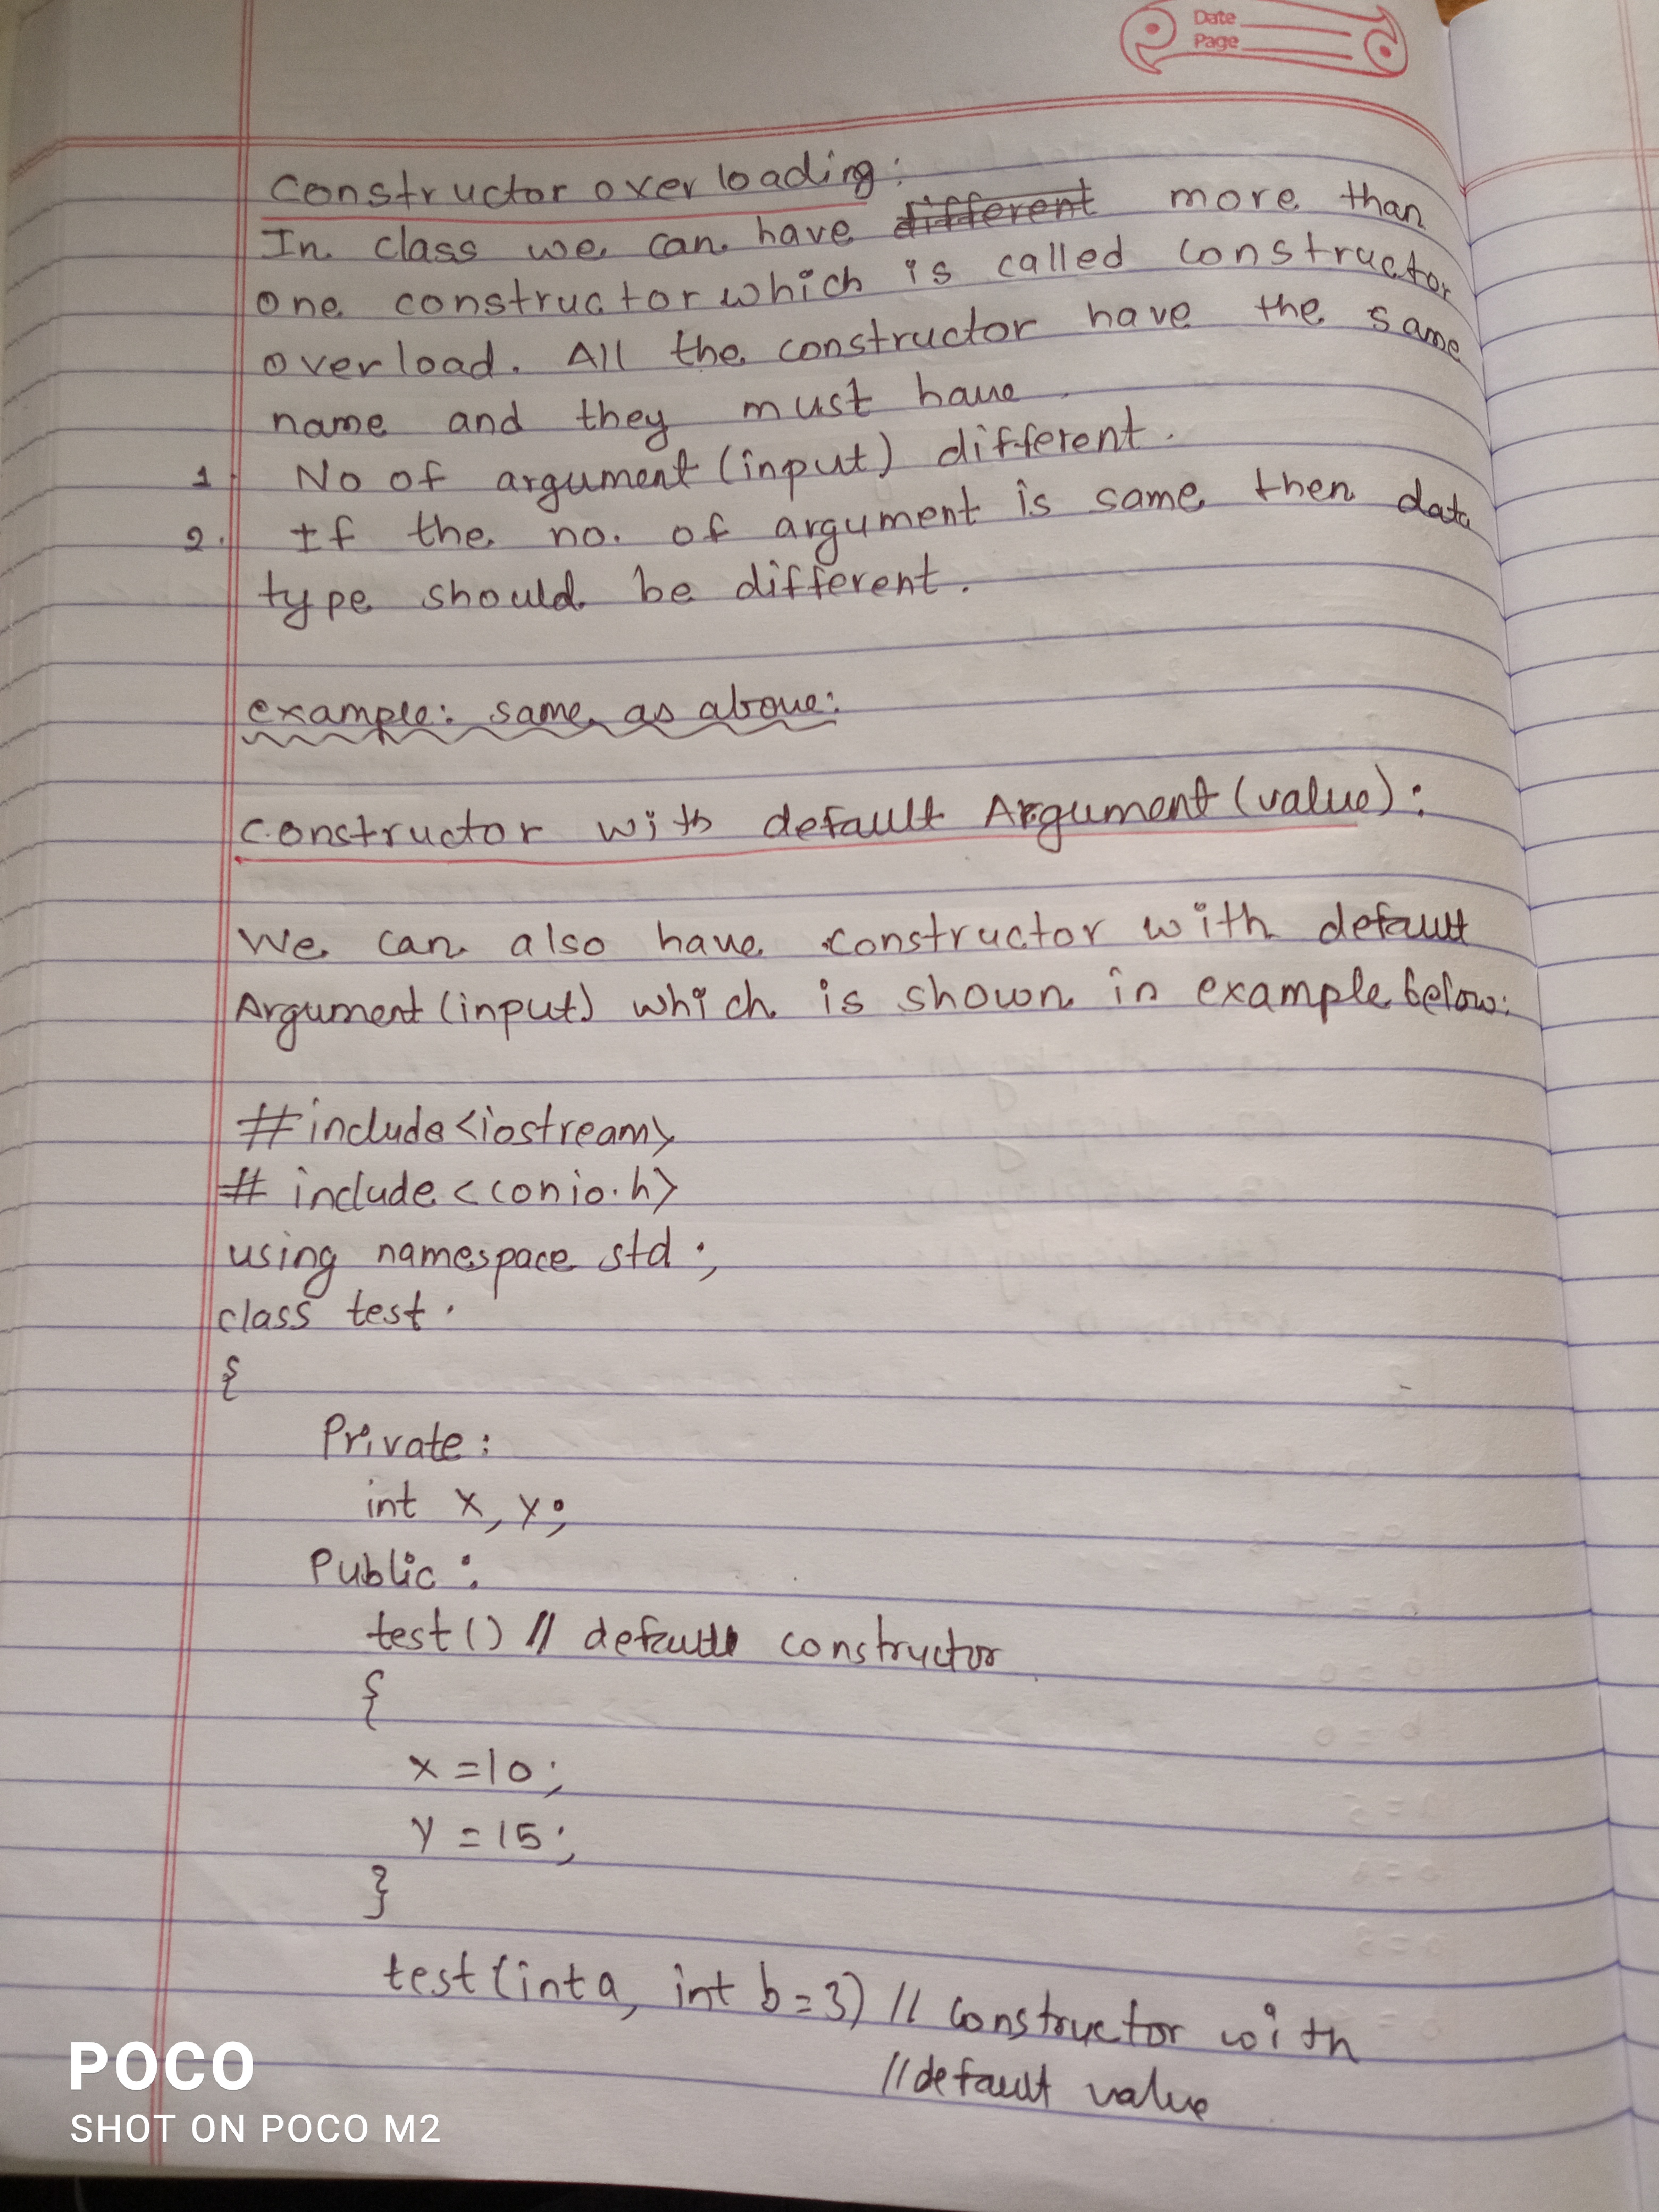 Date
Page
constructor over loading:
In class we can have different more than
one constructor which is called constructor
overload. All the constructor have the same
name and they must have
1. No of argument (input) different.
2. If the no. of argument is same then data
type should be different.
example: same as above:
constructor with default Argument (value):
We can also have constructor with default
Argument (input) which is shown in example below:
#include<iostream>
# include <conio.h>
using namespace std;
class test.
{
Private:
int x, y;
Public:
test() // default constructor
{
x=10;
y=15;
}
test(int a, int b=3) // constructor with
//default value
POCO
SHOT ON POCO M2